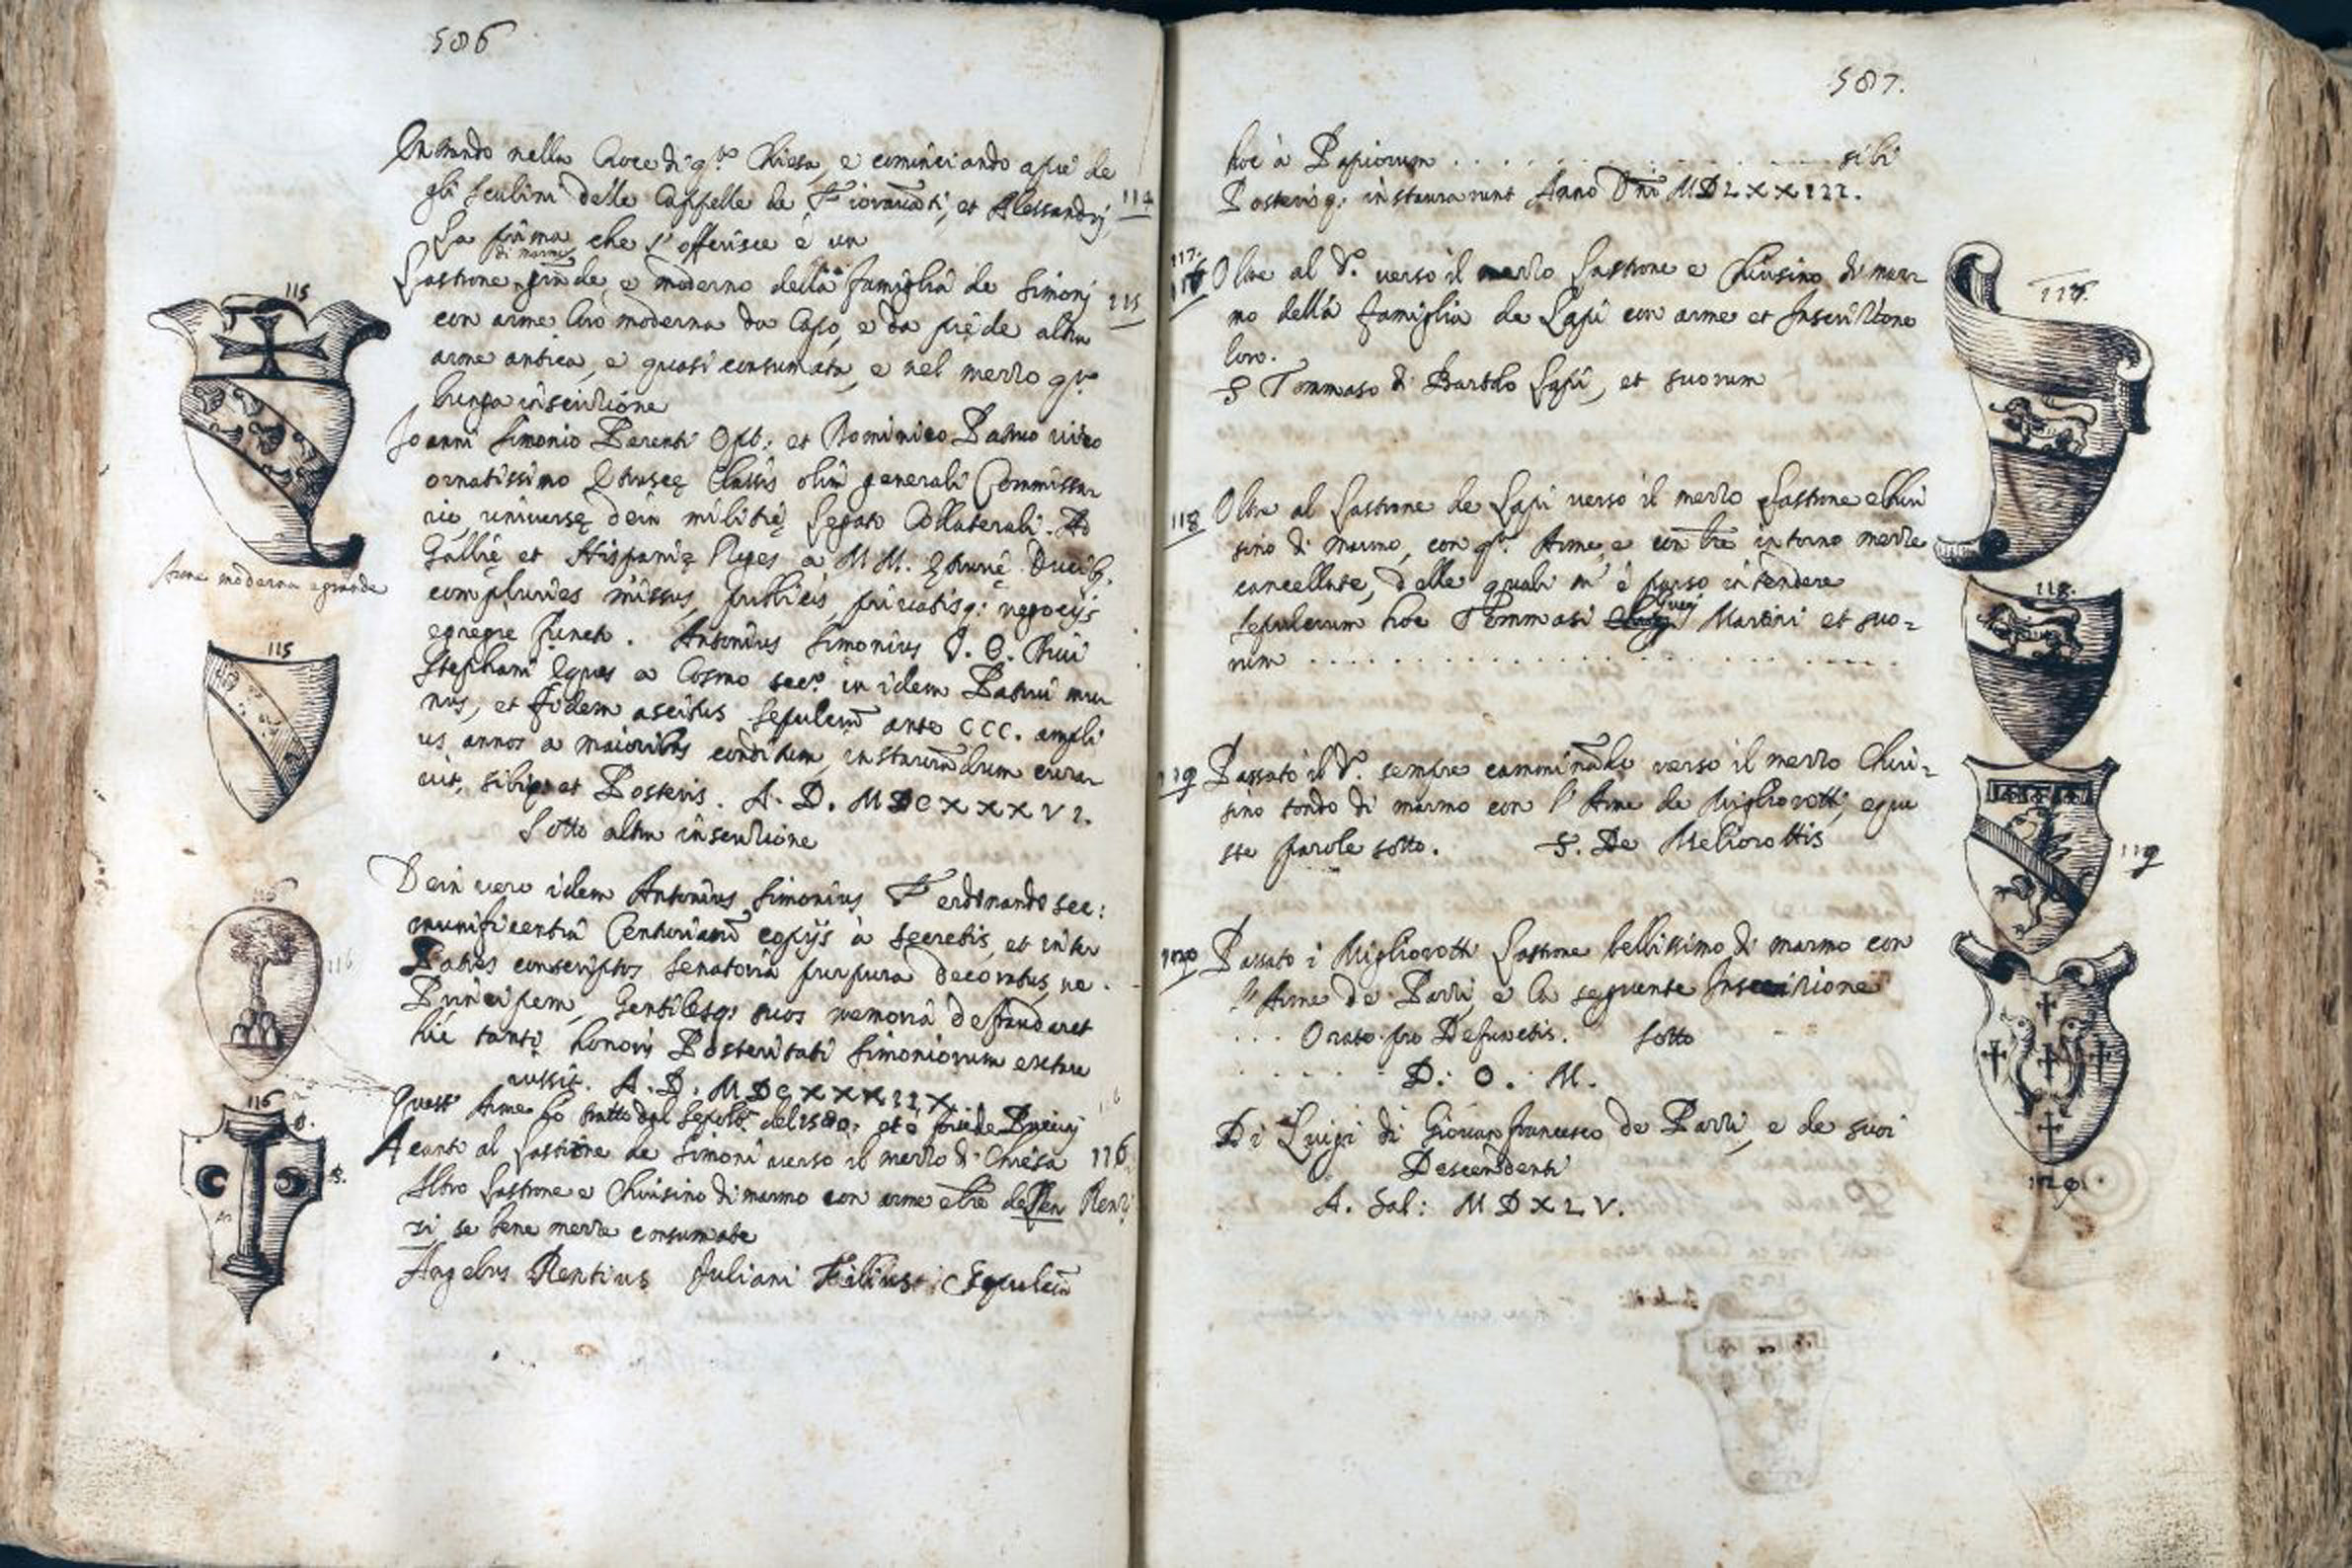 586
Entrando nella Croce di q.ta Chiesa, e cominciando a piè de
gli scalini delle Cappelle de Fioravanti, et Alessandrj 114
La prima che s'offerisce è un
di marmo
Lastrone grande e moderno della famiglia de Simonj 115
con arme loro moderna da Capo, e da piede altra
arme antica, e quasi consumata, e nel mezzo q.ta
lunga inscrizione
Joanni Simonio Parenti Opt: et Dominico Patruo viro
ornatissimo Etruscę Classis olim generali Commissa
rio, universę dein militię Legato Collaterali. Ad
Gallię et Hispanię Reges a MM. Etrurię Ducib.
compluries missus, publicis, privatisq: negocijs
egregie funct. Antonius Simonius J. C. Divi
Stephani Eques a Cosmo sec.o in idem Patrui mu
nus, et fidem ascitus sepulcrũ ante CCC. ampli
us annos a maioribus conditum, instaurãdum cura
vit, sibiq: et Posteris. A. D. MDCXXXVI.
Sotto altra inscrizione
Dein vero idem Antonius Simonius Ferdinando sec:
munificentia Centurianũ copijs à secretis, et inter
Patres conscriptos Senatoria purpura decoratus, ne
Principem, Gentilesq: suos memoria defraudaret
hic tanti honoris Posteritati Simoniorum
A. D. MDCXXXIIX.
Quest' Arme ho tratto dal Sepolt.
Acanto al Lastrone de Simoni verso il mezzo di Chiesa 116
Altro Lastrone e Chiusino di marmo con arme e lre de Ren Renz
zi se bene mezze consumate
Angelus Rentius Juliani Filius Sepulcrũ
115
Arme moderna e grande
115
116
116
116
587.
hoc à Papiorum . . . . . . . . . . . . sibi
Posterisq: instaurarunt Anno Dni MDLXXIII.
117. Oltre al d.o verso il mezzo Lastrone e Chiusino di mar
mo della famiglia de Lapi con arme et Inscrizione
loro.
S Tommaso di Bartolo Lapi, et suorum
118 Oltre al Lastrone de Lapi verso il mezzo Lastrone e Chiu
sino di marmo, con q.ta Arme, e con lre intorno mezze
cancellate, delle quali m' è parso intendere
Sepulcrum hoc Tommasi Martini et suo=
rum . . . . . . . . . . . . . . . . . . . .
119 Passato il d.o sempre camminãdo verso il mezzo Chiu=
sino tondo di marmo con l' Arme de Migliorotti, e que
ste parole sotto. S. De Meliorottis
120 Passato i Migliorotti Lastrone bellissimo di marmo con
l' Arme de Pazzi, e la seguente Inscrizione
. . . Orate pro Defunctis. Sotto
. . . . . D. O. M.
Di Luigi di Giovanfrancesco de Pazzi, e de suoi
Descendenti
A. Sal: MDXLV.
118.
119
120.